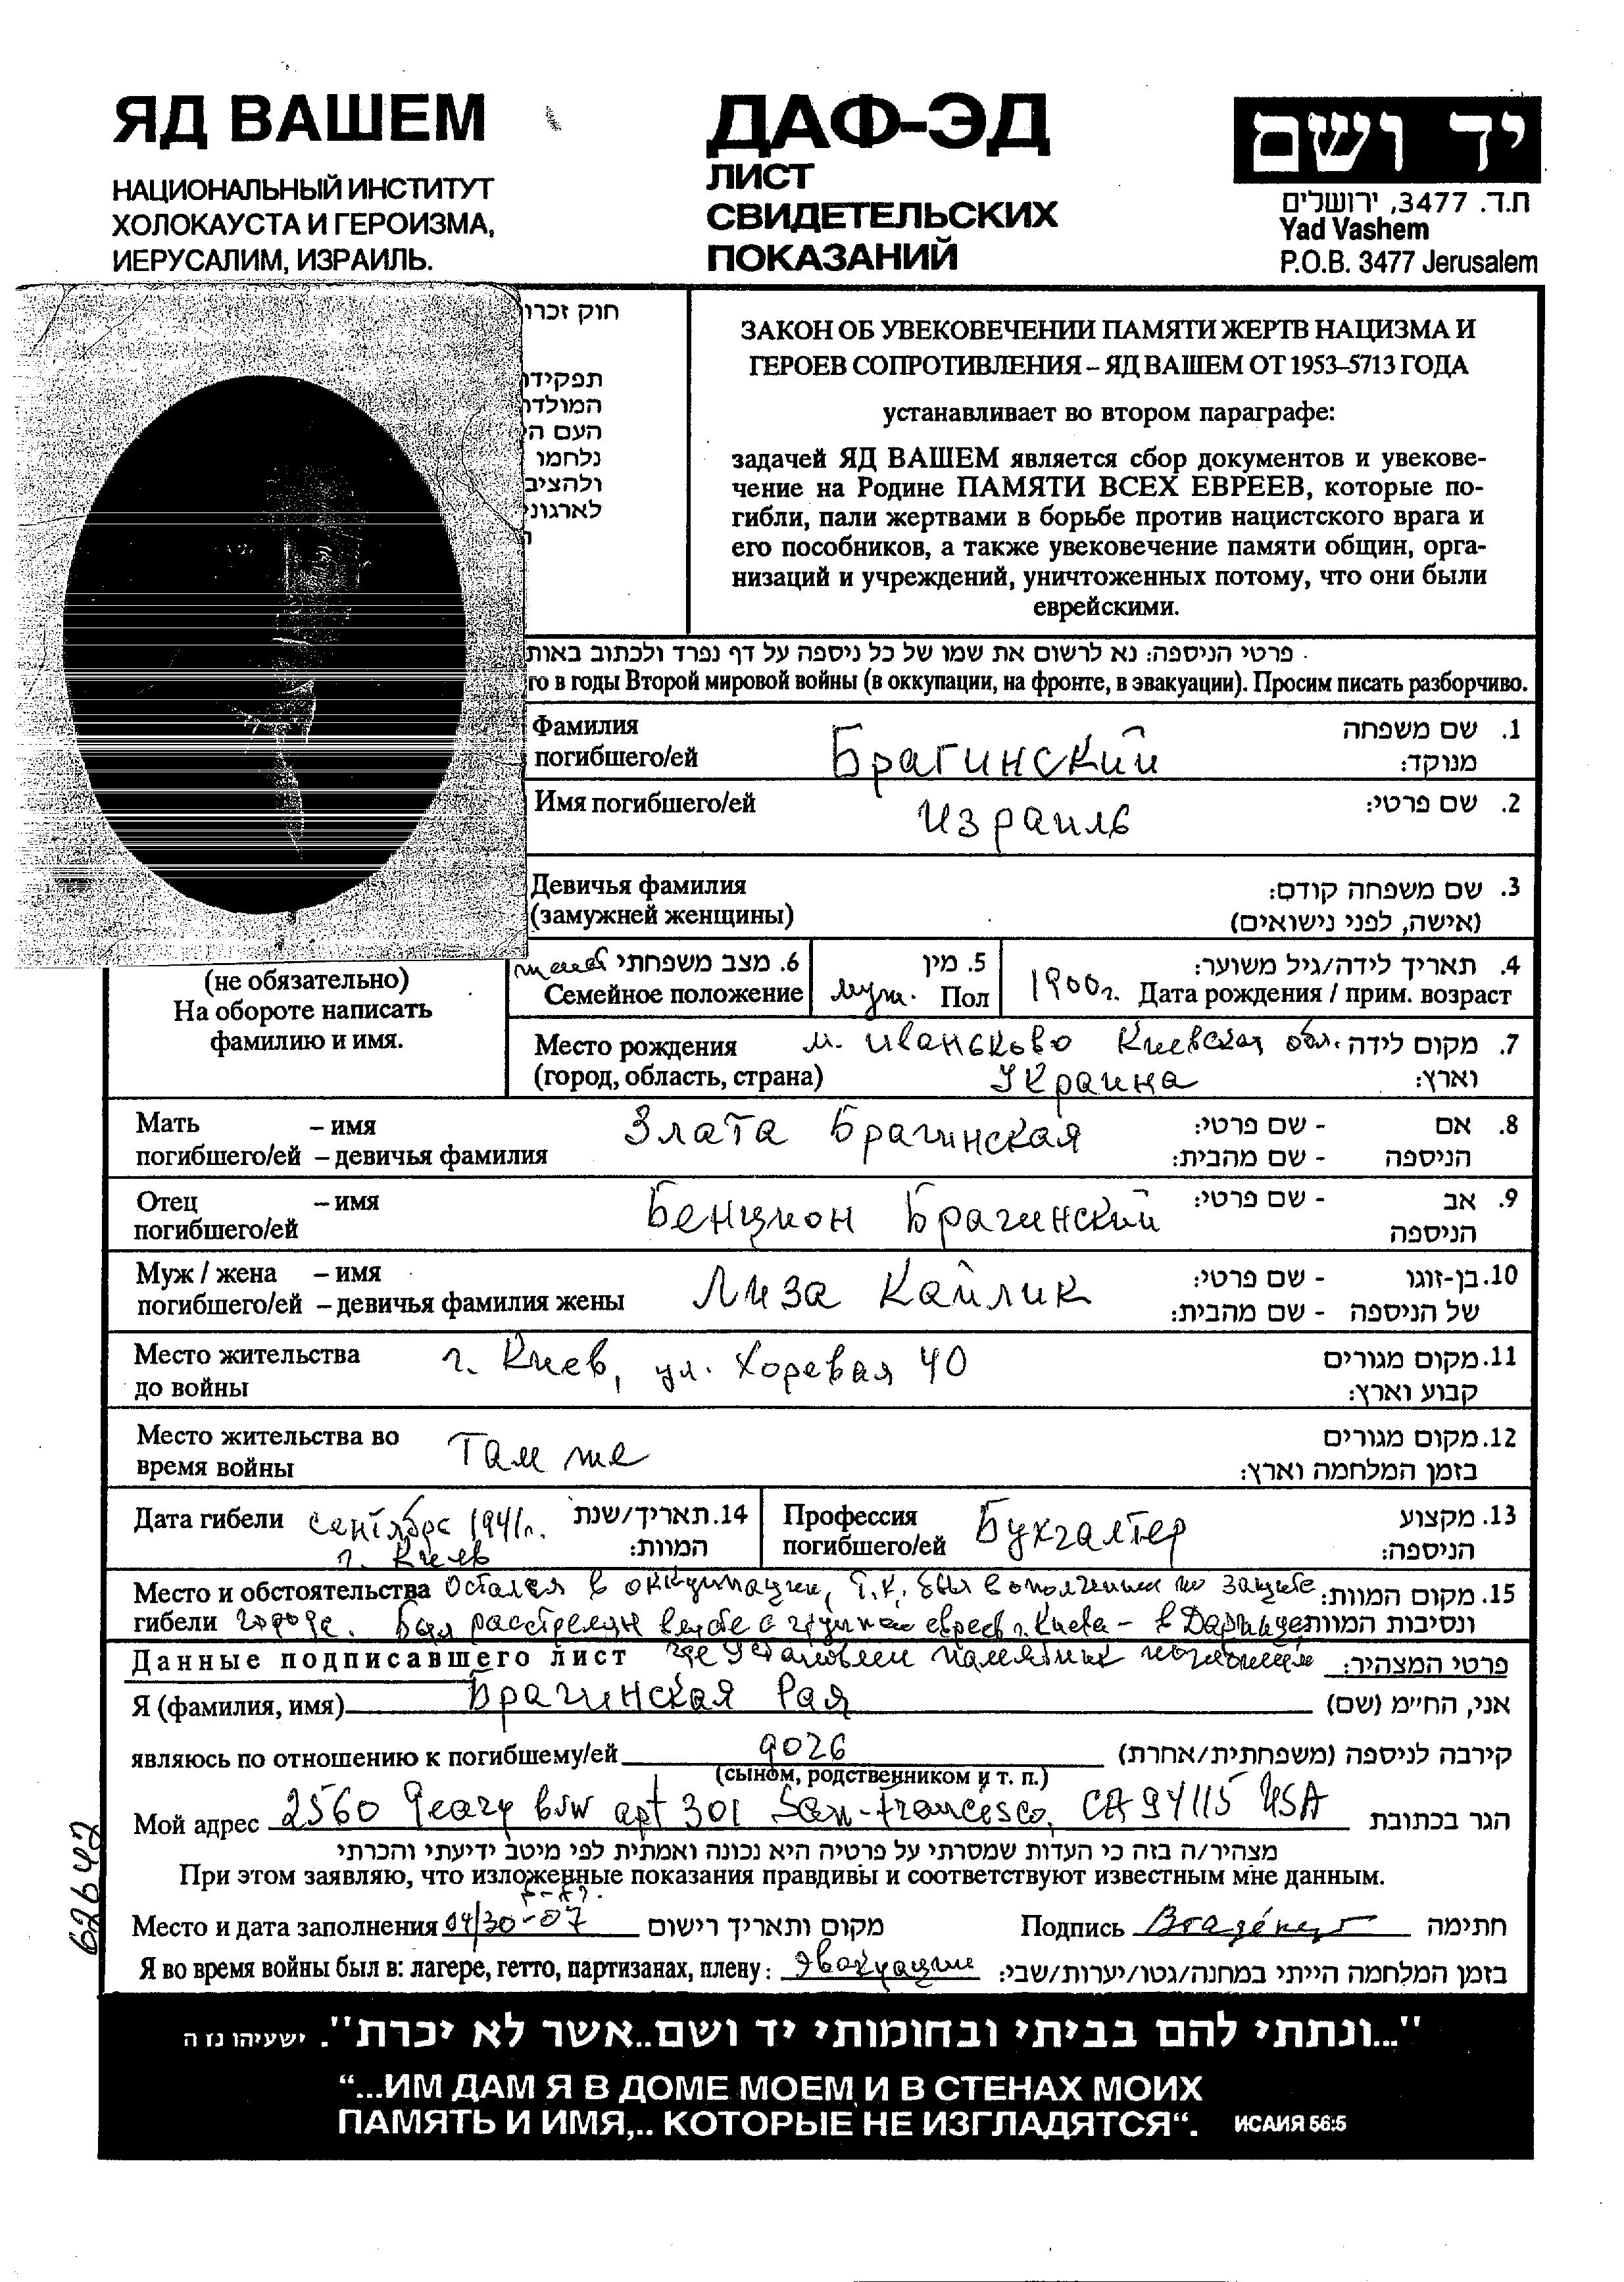 ЯД ВАШЕМ
НАЦИОНАЛЬНЫЙ ИНСТИТУТ
ХОЛОКАУСТА И ГЕРОИЗМА,
ИЕРУСАЛИМ, ИЗРАИЛЬ.
ДАФ-ЭД
ЛИСТ
СВИДЕТЕЛЬСКИХ
ПОКАЗАНИЙ
יד ושם
ת.ד. 3477, ירושלים
Yad Vashem
P.O.B. 3477 Jerusalem
חוק זכרו
תפקידו
המולדת
העם הי
נלחמו
ולהציב
לארגוני
ЗАКОН ОБ УВЕКОВЕЧЕНИИ ПАМЯТИ ЖЕРТВ НАЦИЗМА И
ГЕРОЕВ СОПРОТИВЛЕНИЯ – ЯД ВАШЕМ ОТ 1953–5713 ГОДА
устанавливает во втором параграфе:
задачей ЯД ВАШЕМ является сбор документов и увекове-
чение на Родине ПАМЯТИ ВСЕХ ЕВРЕЕВ, которые по-
гибли, пали жертвами в борьбе против нацистского врага и
его пособников, а также увековечение памяти общин, орга-
низаций и учреждений, уничтоженных потому, что они были
еврейскими.
פרטי הניספה: נא לרשום את שמו של כל ניספה על דף נפרד ולכתוב באות
го в годы Второй мировой войны (в оккупации, на фронте, в эвакуации). Просим писать разборчиво.
Фамилия Брагинский 1. שם משפחה
погибшего/ей מנוקד:
Имя погибшего/ей Израиль 2. שם פרטי:
Девичья фамилия 3. שם משפחה קודם:
(замужней женщины) (אישה, לפני נישואים)
(не обязательно)
На обороте написать
фамилию и имя.
6. מצב משפחתי 5. מין 4. תאריך לידה/גיל משוער:
Семейное положение муж. Пол 1900г. Дата рождения / прим. возраст
Место рождения м. Иваньково Киевская обл. 7. מקום לידה
(город, область, страна) Украина וארץ:
Мать – имя Злата Брагинская 8. אם - שם פרטי:
погибшего/ей – девичья фамилия הניספה - שם מהבית:
Отец – имя Бенцион Брагинский 9. אב - שם פרטי:
погибшего/ей הניספה
Муж / жена – имя Лиза Кайлик 10. בן-זוגו - שם פרטי:
погибшего/ей – девичья фамилия жены של הניספה - שם מהבית:
Место жительства г. Киев, ул. Хоревая 40 11. מקום מגורים
до войны קבוע וארץ:
Место жительства во Там же 12. מקום מגורים
время войны בזמן המלחמה וארץ:
Дата гибели сентябрь 1941г. 14. תאריך/שנת המוות:
г. Киев
Профессия Бухгалтер 13. מקצוע
погибшего/ей הניספה:
Место и обстоятельства Остался в оккупации, т.к. был в ополчении по защите 15. מקום המוות:
гибели города. Был расстрелян вместе с группой евреев г. Киева – в Дарнице ונסיבות המוות
Данные подписавшего лист где установлен памятник погибшим פרטי המצהיר:
Я (фамилия, имя) Брагинская Рая אני, החי"מ (שם)
являюсь по отношению к погибшему/ей дочь קירבה לניספה (משפחתית/אחרת)
(сыном, родственником и т. п.)
Мой адрес 2560 Geary blw apt 301 San-Francesco, CA 94115 USA הגר בכתובת
מצהיר/ה בזה כי העדות שמסרתי על פרטיה היא נכונה ואמתית לפי מיטב ידיעתי והכרתי
При этом заявляю, что изложенные показания правдивы и соответствуют известным мне данным.
Место и дата заполнения 04/30-07 מקום ותאריך רישום Подпись חתימה
Я во время войны был в: лагере, гетто, партизанах, плену: эвакуации בזמן המלחמה הייתי במחנה/גטו/יערות/שבי:
626642
"...ונתתי להם בביתי ובחומותי יד ושם..אשר לא יכרת". ישעיהו נו ה
“...ИМ ДАМ Я В ДОМЕ МОЕМ И В СТЕНАХ МОИХ
ПАМЯТЬ И ИМЯ,.. КОТОРЫЕ НЕ ИЗГЛАДЯТСЯ“. ИСАИЯ 56:5